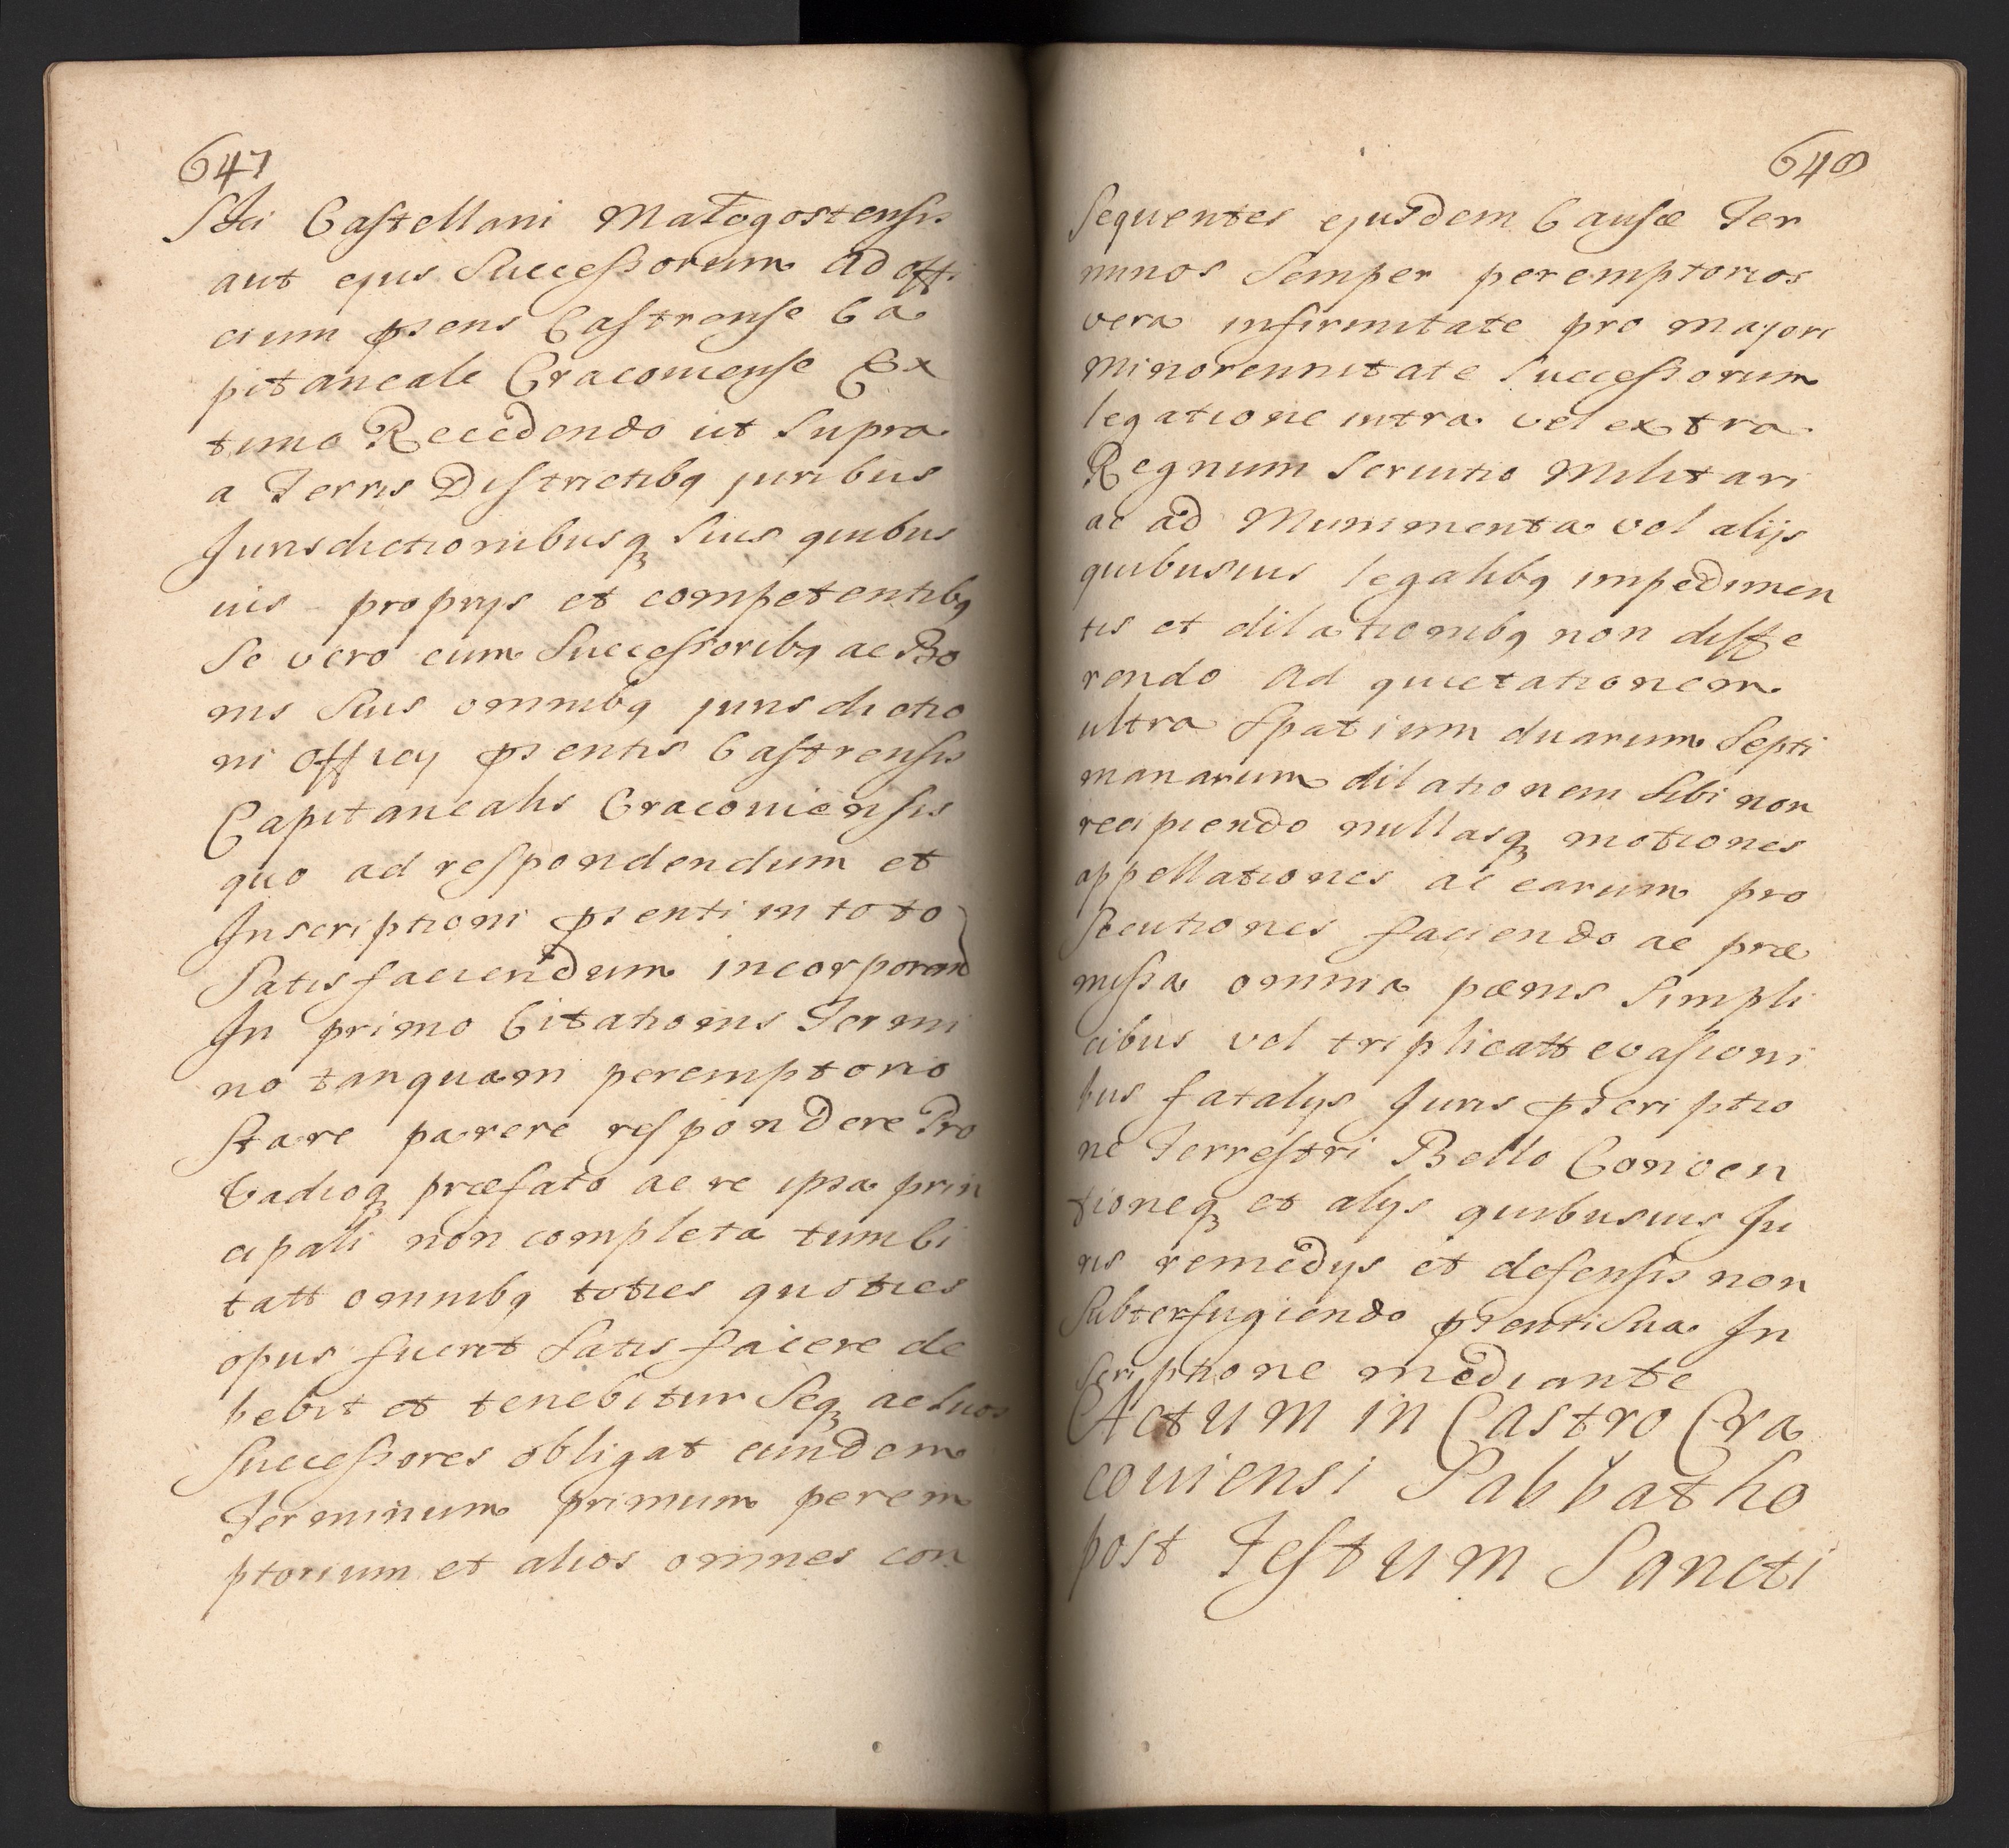 647
Sti Castellani Małogostensis
aut ejus Successorum ad offi
cium pñens Castrense Ca
pitaneale Cracoviense Ex
tunc Recedendo ut supra
a Terris Districtibq juribus
Jurisdictionibusq suis quibus
vis proprijs et competentibq
Se vero cum Successoribq ac Bo
nis suis omnibq jurisdictio
ni officij pñentis Castrensis
Capitanealis Cracoviensis
quo ad respondendum et
Inscriptioni pñenti in toto
satisfaciendum incorporand
In primo Citationis Termi
no tanquam peremptorio
stare parere respondere Pro
Vadioq præfato ac re ipsa prin
cipali non completa tum li
tatt omnibq toties quoties
opus fuerit satis facere de
bebit et tenebitur Seq ac suos
Successores obligat eundem
Terminum primum perem
ptorium et alios omnes con
648
sequentes ejusdem Causæ Ter
minos semper peremptorios
vera infirmitate pro majori
minorennitate Successorum
legatione intra vel extra
Regnum servitio Militari
ac ad Munimenta vel alijs
quibusvis legalibq impedimen
tis et dilationibq non diffe
rendo ad quietationem
ultra spatium duarum Septi
manarum dilationem sibi non
recipiendo nullasq motiones
appellationes ac earum pro
secutiones faciendo ac præ
missa omnia pœnis simpli
cibus vel triplicatt evasioni
bus fatalijs Juris pscriptio
ne Terrestri Bello Conven
tioneq et alijs quibusvis Ju
ris remedijs et defensis non
subterfugiendo pñenti sua In
scriptione mediante
Actum in Castro Cra
coviensi Sabbatho
post Festum Sancti